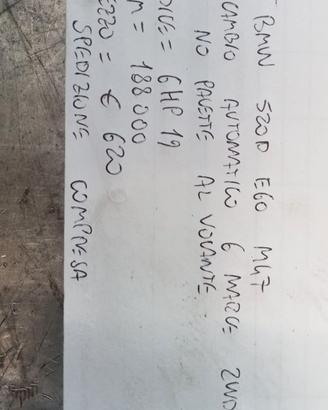 BMW 520D E60 M47
CAMBIO AUTOMATICO 6 MARCE 2WD
NO PALETTE AL VOLANTE
DICE = 6HP19
M = 188000
EZZO = € 620
SPEDIZIONE COMPRESA